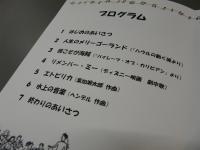 プログラム
1 はじめのあいさつ
2 人生のメリーゴーランド (「ハウルの動く城」より)
3 彼こそが海賊 (「パイレーツ・オブ・カリビアン」より)
4 リメンバー・ミー (ディズニー映画 劇中歌)
5 エトピリカ (葉加瀬太郎 作曲)
6 水上の音楽 (ヘンデル 作曲)
7 終わりのあいさつ